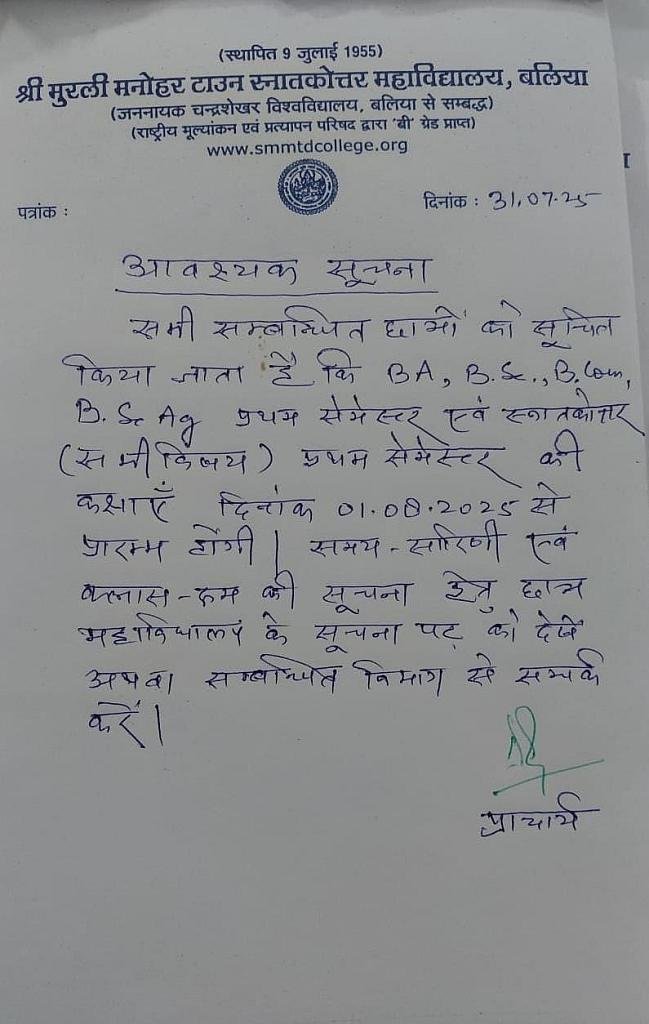 (स्थापित 9 जुलाई 1955)
श्री मुरली मनोहर टाउन स्नातकोत्तर महाविद्यालय, बलिया
(जननायक चन्द्रशेखर विश्वविद्यालय, बलिया से सम्बद्ध)
(राष्ट्रीय मूल्यांकन एवं प्रत्यापन परिषद द्वारा 'बी' ग्रेड प्राप्त)
www.smmtdcollege.org
पत्रांक :
दिनांक : 31.07.25
आवश्यक सूचना
सभी सम्बन्धित छात्रों को सूचित
किया जाता है कि BA, B.Sc., B.Com,
B.Sc Ag प्रथम सेमेस्टर एवं स्नातकोत्तर
(सभी विषय) प्रथम सेमेस्टर की
कक्षाएँ दिनांक 01.08.2025 से
प्रारम्भ होंगी। समय-सारिणी एवं
क्लास-रूम की सूचना हेतु छात्र
महाविद्यालय के सूचना पट्ट को देखें
अथवा सम्बन्धित विभाग से सम्पर्क
करें।
प्राचार्य